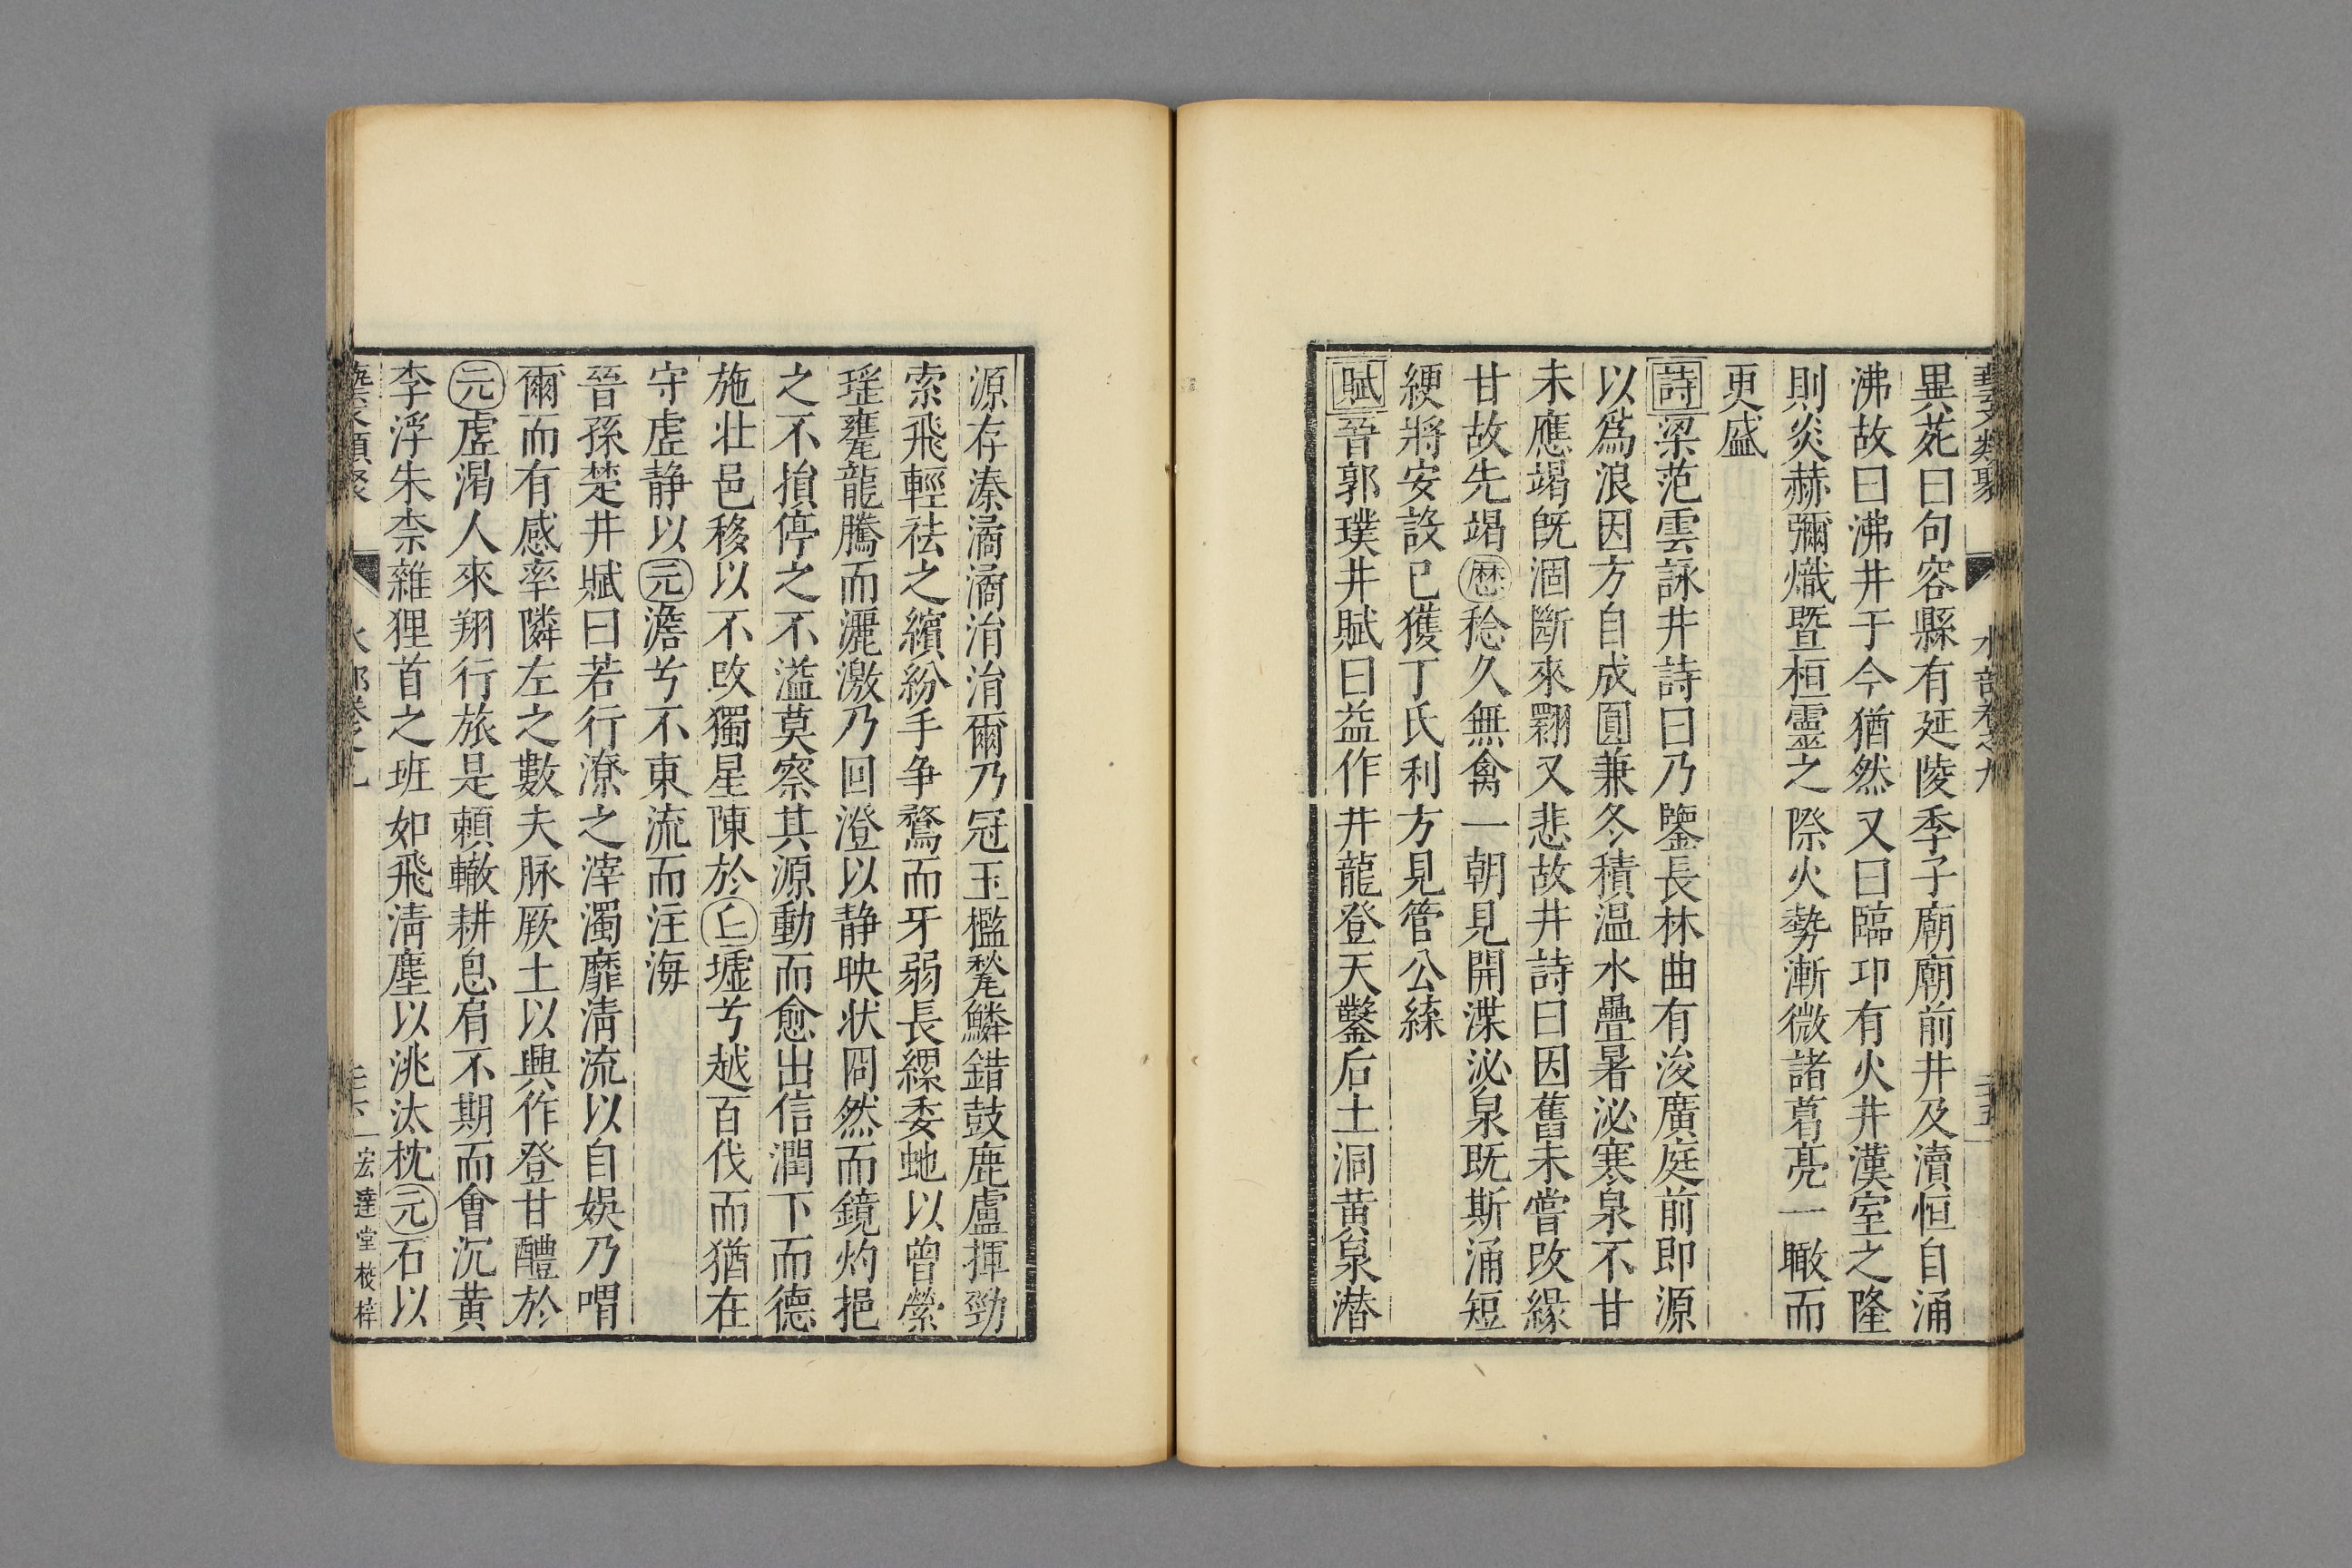 藝文類聚 水部卷之九 二十五
異苑曰句容縣有延陵季子廟廟前井及瀆恒自涌
沸故曰沸井于今猶然又曰臨卭有火井漢室之隆
則炎赫彌熾暨桓靈之際火勢漸微諸葛亮一瞰而
更盛
詩梁范雲詠井詩曰乃鑒長林曲有浚廣庭前即源
以爲浪因方自成圓兼冬積温水疊暑泌寒泉不甘
未應竭旣涸斷來翾又悲故井詩曰因舊未嘗改緣
甘故先竭厯稔久無禽一朝見開渫泌泉既斯涌短
綆將安設已獲丁氏利方見管公綊
賦晉郭璞井賦曰益作井龍登天鑿后土洞黄泉潜
源存溱潏潏洧洧爾乃冠玉檻甃鱗錯鼓鹿盧揮勁
索飛輕袪之繽紛手爭鶩而牙弱長縲委虵以曾縈
瑶甕龍騰而灑激乃回澄以静映状冏然而鏡灼挹
之不損停之不溢莫察其源動而愈出信潤下而德
施壮邑移以不改獨星陳於丘墟兮越百伐而猶在
守虚静以元澹兮不東流而注海
晉孫楚井賦曰若行潦之滓濁靡清流以自娛乃喟
爾而有感率隣左之數夫脉厥土以興作登甘醴於
元虚渴人來翔行旅是頼轍耕息肩不期而會沉黄
李浮朱柰雜狸首之班如飛清塵以洮汰枕元石以
類聚 水部卷之九 二十六 宏達堂校梓